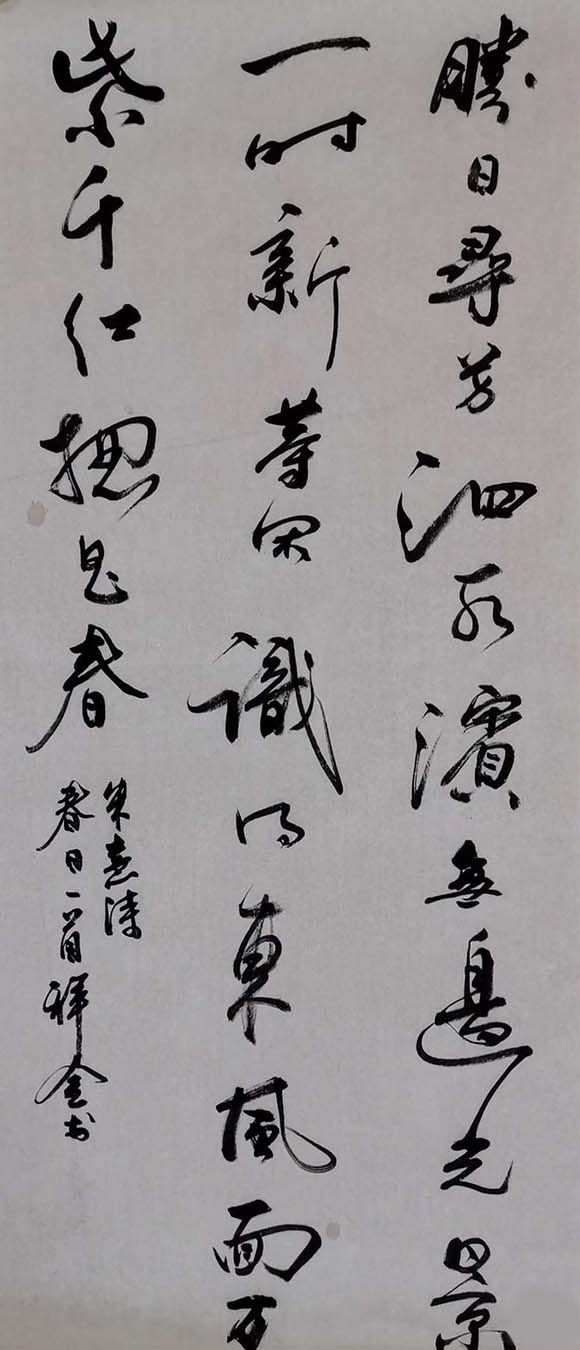 勝日尋芳泗水濱無邊光景
一时新等闲識得東風面万
紫千红摠是春
朱熹诗
春日一首祥金书